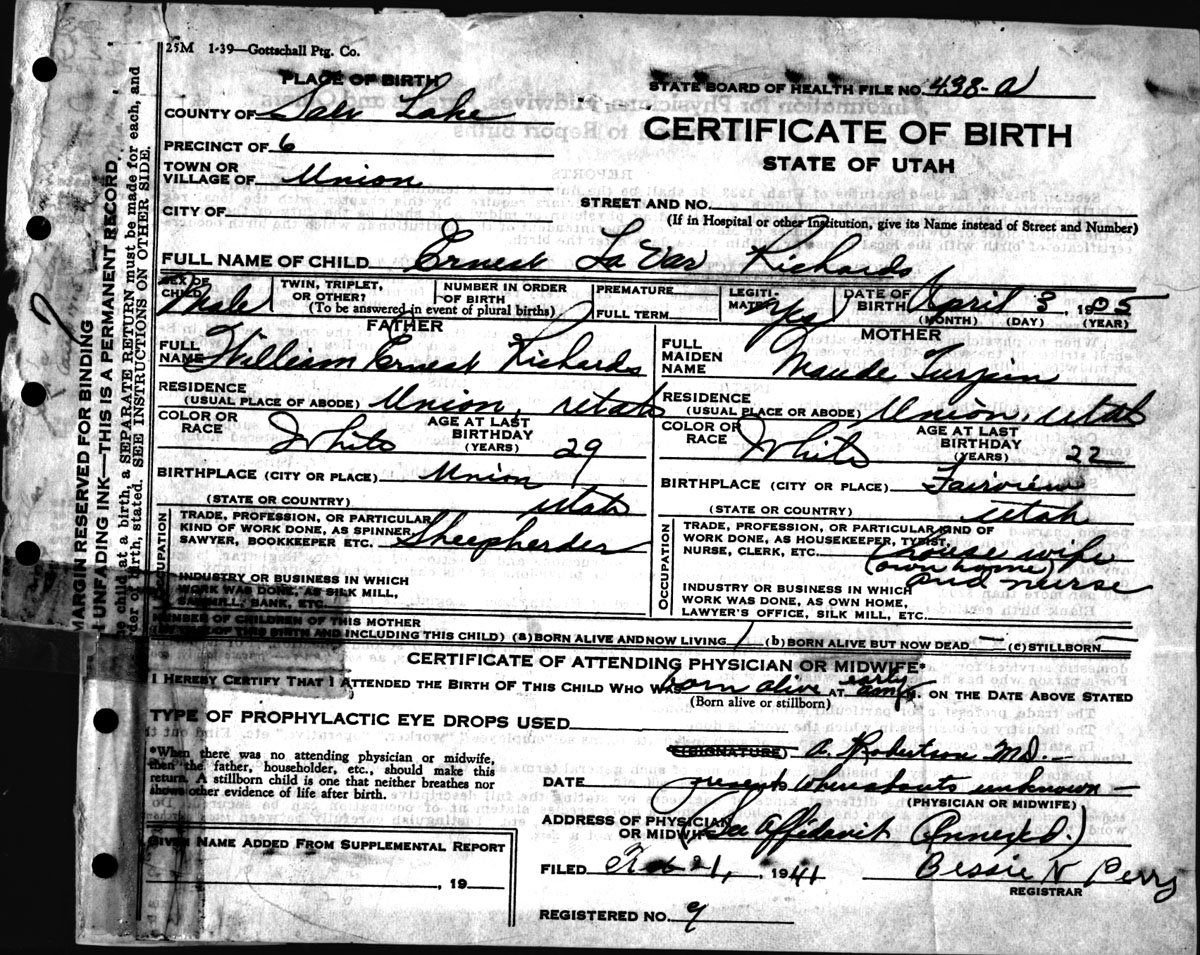 25M 1-39—Gottschall Ptg. Co.
PLACE OF BIRTH
COUNTY OF Salt Lake
PRECINCT OF 6
TOWN OR
VILLAGE OF Union
CITY OF
STATE BOARD OF HEALTH FILE NO. 438-a
CERTIFICATE OF BIRTH
STATE OF UTAH
STREET AND NO.
(If in Hospital or other Institution, give its Name instead of Street and Number)
FULL NAME OF CHILD Ernest La Var Richards
SEX OF
CHILD Male
TWIN, TRIPLET,
OR OTHER?
NUMBER IN ORDER
OF BIRTH
(To be answered in event of plural births)
PREMATURE
FULL TERM
LEGITI-
MATE? Yes
DATE OF
BIRTH April 3, 1905
(MONTH) (DAY) (YEAR)
FATHER
FULL
NAME William Ernest Richards
RESIDENCE
(USUAL PLACE OF ABODE) Union, Utah
COLOR OR
RACE White
AGE AT LAST
BIRTHDAY
(YEARS) 29
BIRTHPLACE (CITY OR PLACE) Union
(STATE OR COUNTRY) Utah
OCCUPATION
TRADE, PROFESSION, OR PARTICULAR
KIND OF WORK DONE, AS SPINNER,
SAWYER, BOOKKEEPER ETC. Sheepherder
INDUSTRY OR BUSINESS IN WHICH
WORK WAS DONE, AS SILK MILL,
SAWMILL, BANK, ETC.
MOTHER
FULL
MAIDEN
NAME Maude Turpin
RESIDENCE
(USUAL PLACE OR ABODE) Union, Utah
COLOR OR
RACE White
AGE AT LAST
BIRTHDAY
(YEARS) 22
BIRTHPLACE (CITY OR PLACE) Fairview
(STATE OR COUNTRY) Utah
OCCUPATION
TRADE, PROFESSION, OR PARTICULAR KIND OF
WORK DONE, AS HOUSEKEEPER, TYPIST,
NURSE, CLERK, ETC. house wife
(own home)
and nurse
INDUSTRY OR BUSINESS IN WHICH
WORK WAS DONE, AS OWN HOME,
LAWYER'S OFFICE, SILK MILL, ETC.
NUMBER OF CHILDREN OF THIS MOTHER
OF THIS BIRTH AND INCLUDING THIS CHILD) (a) BORN ALIVE AND NOW LIVING 1 (b) BORN ALIVE BUT NOW DEAD — (c) STILLBORN —
CERTIFICATE OF ATTENDING PHYSICIAN OR MIDWIFE*
I HEREBY CERTIFY THAT I ATTENDED THE BIRTH OF THIS CHILD WHO WAS born alive AT early am M. ON THE DATE ABOVE STATED
(Born alive or stillborn)
TYPE OF PROPHYLACTIC EYE DROPS USED
*When there was no attending physician or midwife,
then the father, householder, etc., should make this
return. A stillborn child is one that neither breathes nor
shows other evidence of life after birth.
(SIGNATURE) A. Robertson M.D.—
DATE present whereabouts unknown —
(PHYSICIAN OR MIDWIFE)
ADDRESS OF PHYSICIAN
OR MIDWIFE (See Affidavit Annexed.)
GIVEN NAME ADDED FROM SUPPLEMENTAL REPORT
, 19
FILED Feb 21, 1941 Bessie N Perry
REGISTRAR
REGISTERED NO. 9
MARGIN RESERVED FOR BINDING
UNFADING INK—THIS IS A PERMANENT RECORD
child at a birth, a SEPARATE RETURN must be made for each, and
order of birth, stated. SEE INSTRUCTIONS ON OTHER SIDE.